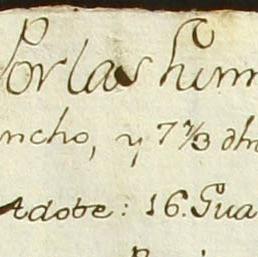 Por las
ncho, y 7 1/3
Adobe: 16. Gua